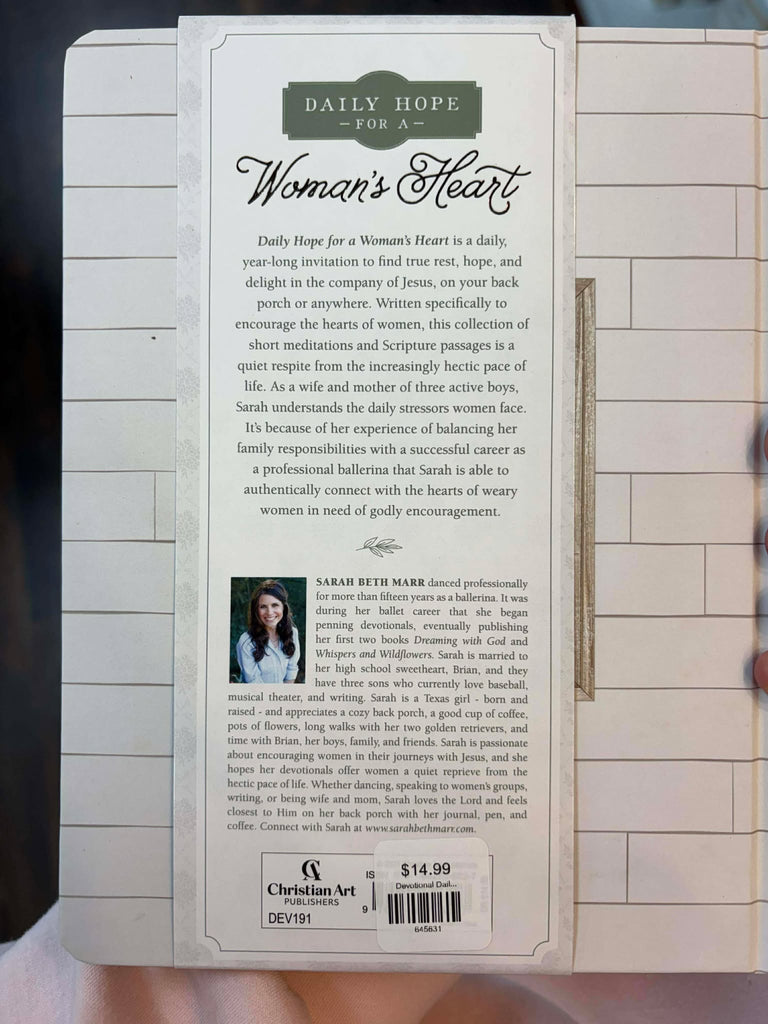 DAILY HOPE
– FOR A –
Woman's Heart
Daily Hope for a Woman's Heart is a daily,
year-long invitation to find true rest, hope, and
delight in the company of Jesus, on your back
porch or anywhere. Written specifically to
encourage the hearts of women, this collection of
short meditations and Scripture passages is a
quiet respite from the increasingly hectic pace of
life. As a wife and mother of three active boys,
Sarah understands the daily stressors women face.
It's because of her experience of balancing her
family responsibilities with a successful career as
a professional ballerina that Sarah is able to
authentically connect with the hearts of weary
women in need of godly encouragement.
SARAH BETH MARR danced professionally
for more than fifteen years as a ballerina. It was
during her ballet career that she began
penning devotionals, eventually publishing
her first two books Dreaming with God and
Whispers and Wildflowers. Sarah is married to
her high school sweetheart, Brian, and they
have three sons who currently love baseball,
musical theater, and writing. Sarah is a Texas girl - born and
raised - and appreciates a cozy back porch, a good cup of coffee,
pots of flowers, long walks with her two golden retrievers, and
time with Brian, her boys, family, and friends. Sarah is passionate
about encouraging women in their journeys with Jesus, and she
hopes her devotionals offer women a quiet reprieve from the
hectic pace of life. Whether dancing, speaking to women's groups,
writing, or being wife and mom, Sarah loves the Lord and feels
closest to Him on her back porch with her journal, pen, and
coffee. Connect with Sarah at www.sarahbethmarr.com.
CA
Christian Art
PUBLISHERS
DEV191
IS
9
$14.99
Devotional Dail...
645631